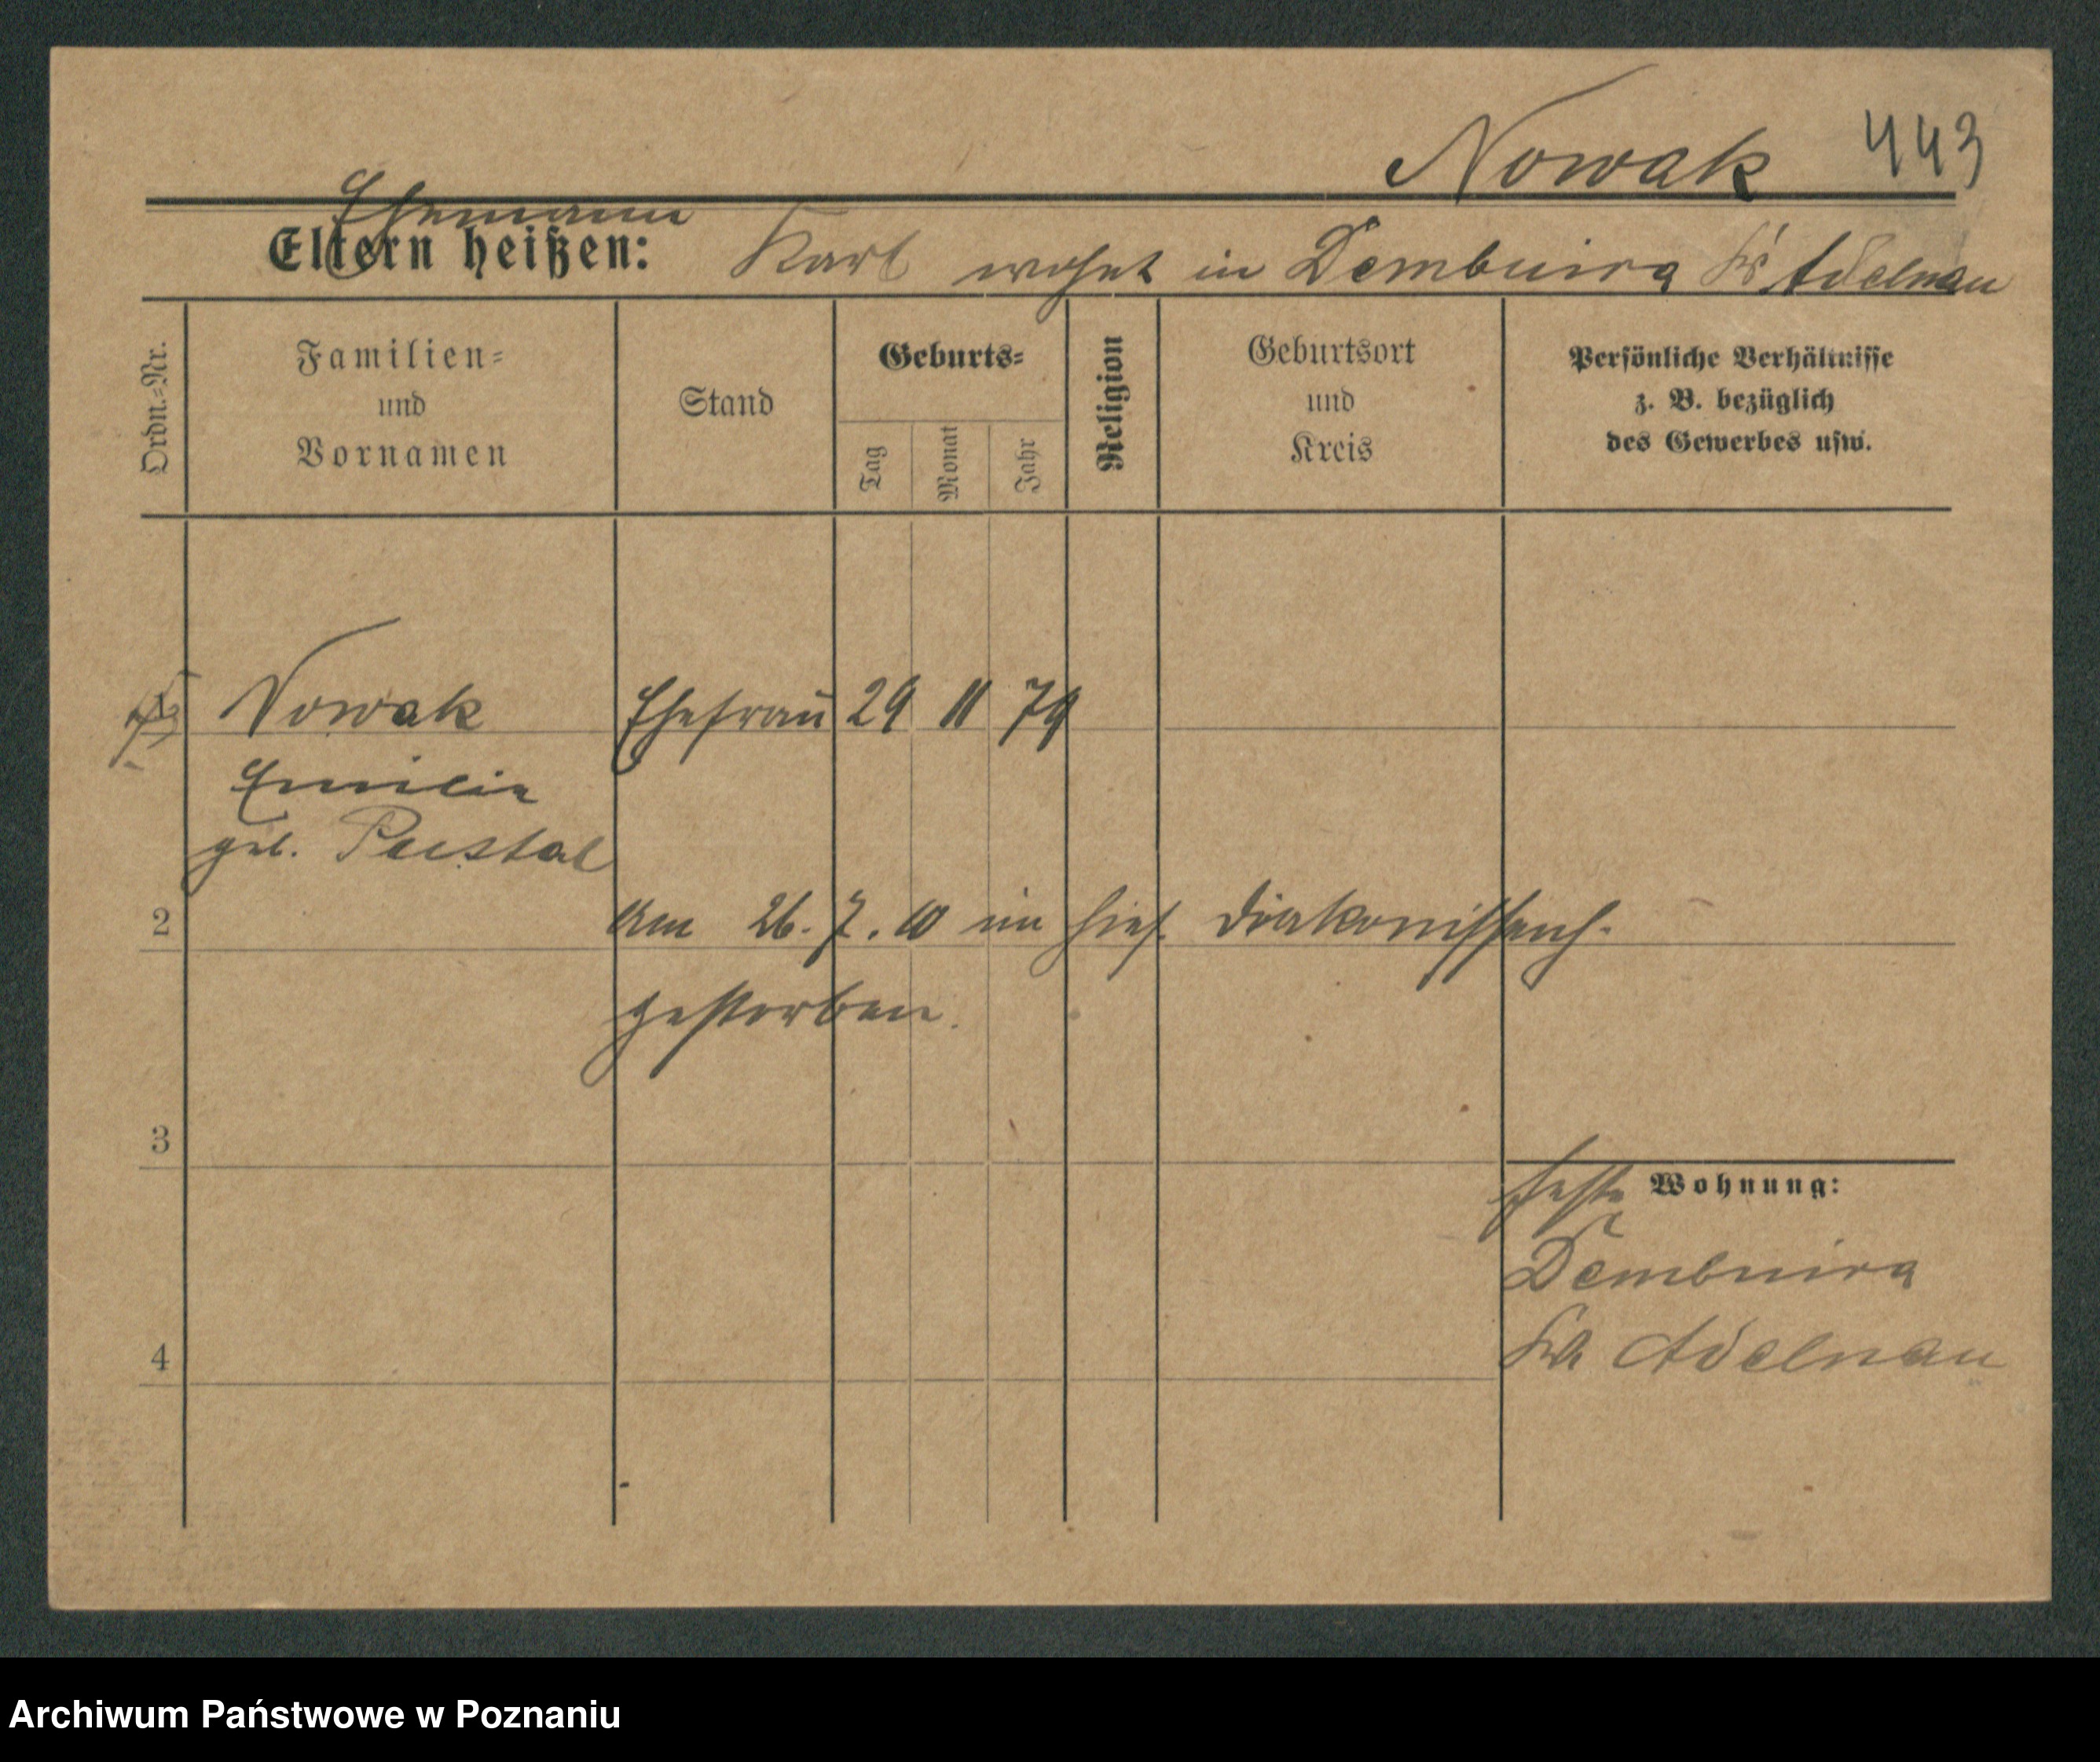 Nowak 443
Ehemann
Eltern heißen: Karl wohnt in Dembnica Kr Adelnau
Ordn.=Nr.
Familien=
und
Vornamen
Stand
Geburts=
Tag
Monat
Jahr
Religion
Geburtsort
und
Kreis
Persönliche Verhältnisse
z. B. bezüglich
des Gewerbes usw.
Nowak Ehefrau 29 11 79
Emilie
geb. Pustal
2 Am 26. 7. 10 im hies. Diakonissenh.
gestorben.
3
feste Wohnung:
Dembnica
4 Kr Adelnau
Archiwum Państwowe w Poznaniu